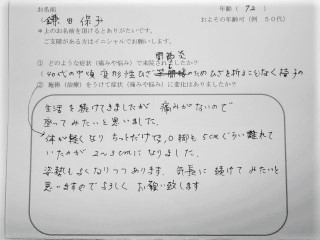 お名前 鎌田保子 年齢( 72 )
*上のお名前を頂けるとありがたいです。 おおよその年齢可(例 50代)
ご支障がある方はイニシャルでお願いします。
①どのような症状(痛みや悩み)で来院されましたか?
関節炎
(40代の中頃 変形性ひざ のためひざを折ることなく椅子の
②施術(治療)をうけて症状(痛みや悩み)に変化はありましたか?
生活を続けてきましたが 痛みがないので
座ってみたいと思いました。
体が軽くなり ちょっとだけO脚も5cmぐらい離れて
いたのが 2~3cmになりました。
姿勢もよくなりつつあります。気長に続けてみたいと
思いますのでよろしくお願い致します